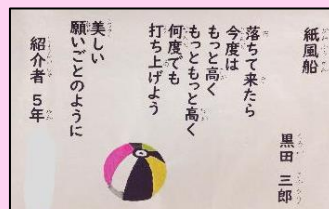 紙風船
黒田 三郎
落ちて来たら
今度は
もっと高く
もっともっと高く
何度でも
打ち上げよう
美しい
願いごとのように
紹介者 5年